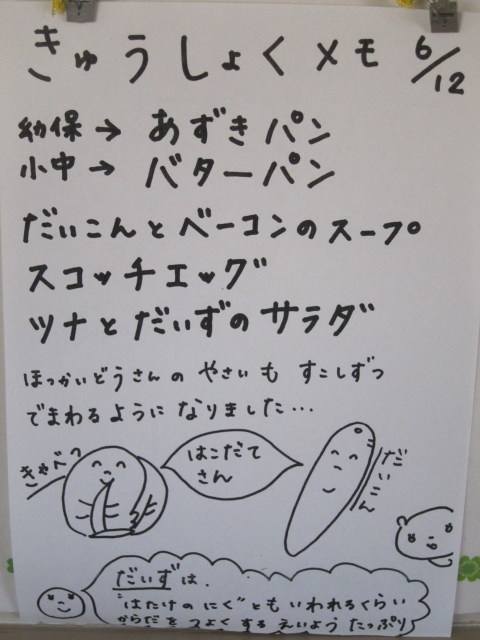 きゅうしょくメモ 6/12
幼保→あずきパン
小中→バターパン
だいこんとベーコンのスープ
スコッチエッグ
ツナとだいずのサラダ
ほっかいどうさんの やさいも すこしずつ
でまわるように なりました…
きゃべつ
はこだて
さん
だいこん
だいずは、
"はたけのにく"ともいわれるくらい
からだをつよくするえいようたっぷり